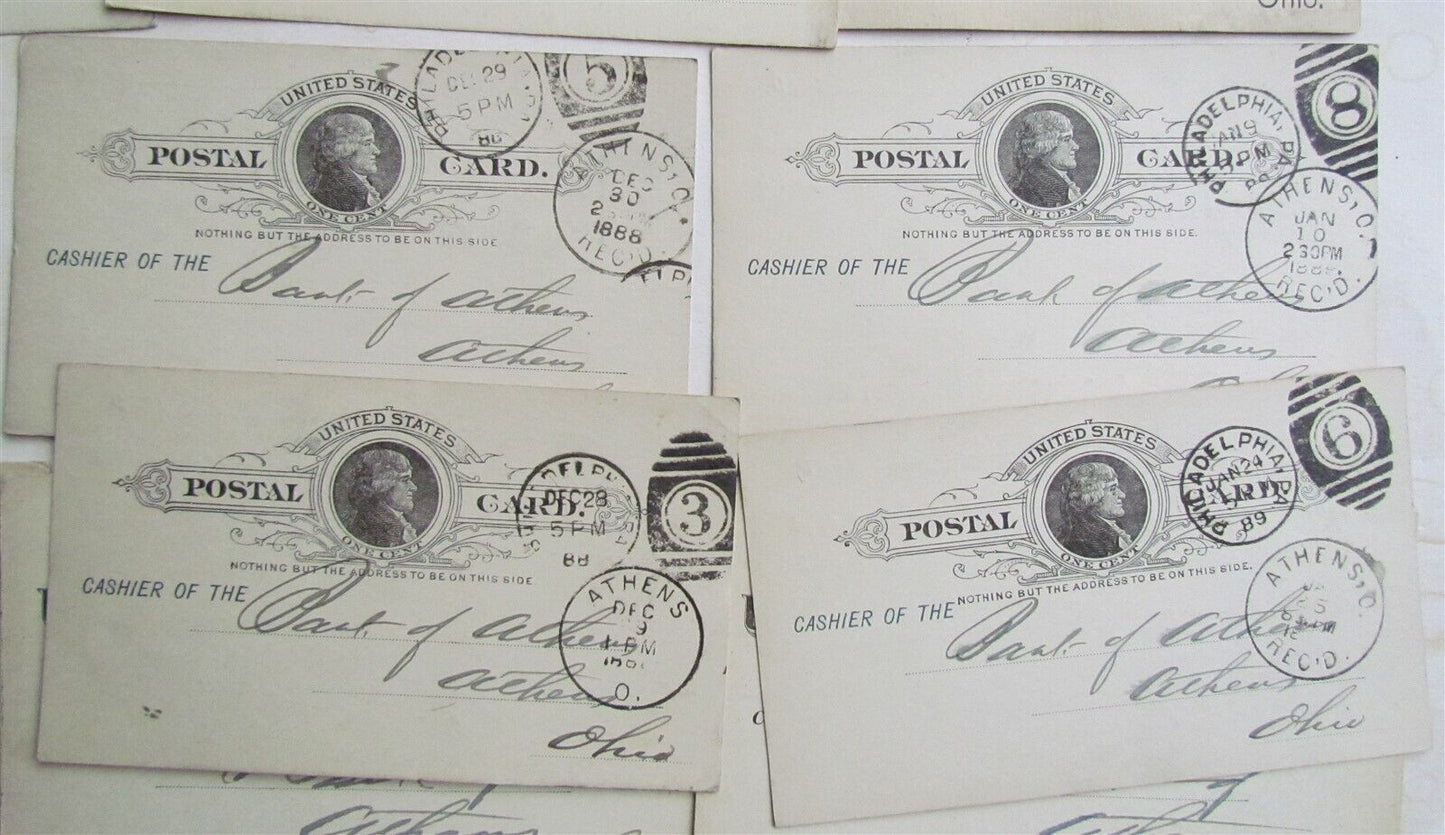 Ohio.
UNITED STATES
POSTAL CARD.
ONE CENT
NOTHING BUT THE ADDRESS TO BE ON THIS SIDE
CASHIER OF THE Bank of Athens
Athens
DEC 29
5 PM
88
5
ATHENS, O.
DEC
30
2
1888
REC'D.
UNITED STATES
POSTAL CARD.
ONE CENT
NOTHING BUT THE ADDRESS TO BE ON THIS SIDE.
CASHIER OF THE Bank of Athens
Athens
PHILADELPHIA, PA.
JAN 9
PM
8
ATHENS, O.
JAN
10
2 30PM
1889.
REC'D.
UNITED STATES
POSTAL CARD.
ONE CENT
NOTHING BUT THE ADDRESS TO BE ON THIS SIDE
CASHIER OF THE Bank of Athens
Athens
Ohio
DEC 28
5 PM
88
3
ATHENS
DEC
PM
O.
UNITED STATES
POSTAL CARD.
ONE CENT
NOTHING BUT THE ADDRESS TO BE ON THIS SIDE.
CASHIER OF THE Bank of Athens
Athens
Ohio
PHILADELPHIA, PA.
JAN 24
PM
89
6
ATHENS, O.
PM
REC'D.
Athens